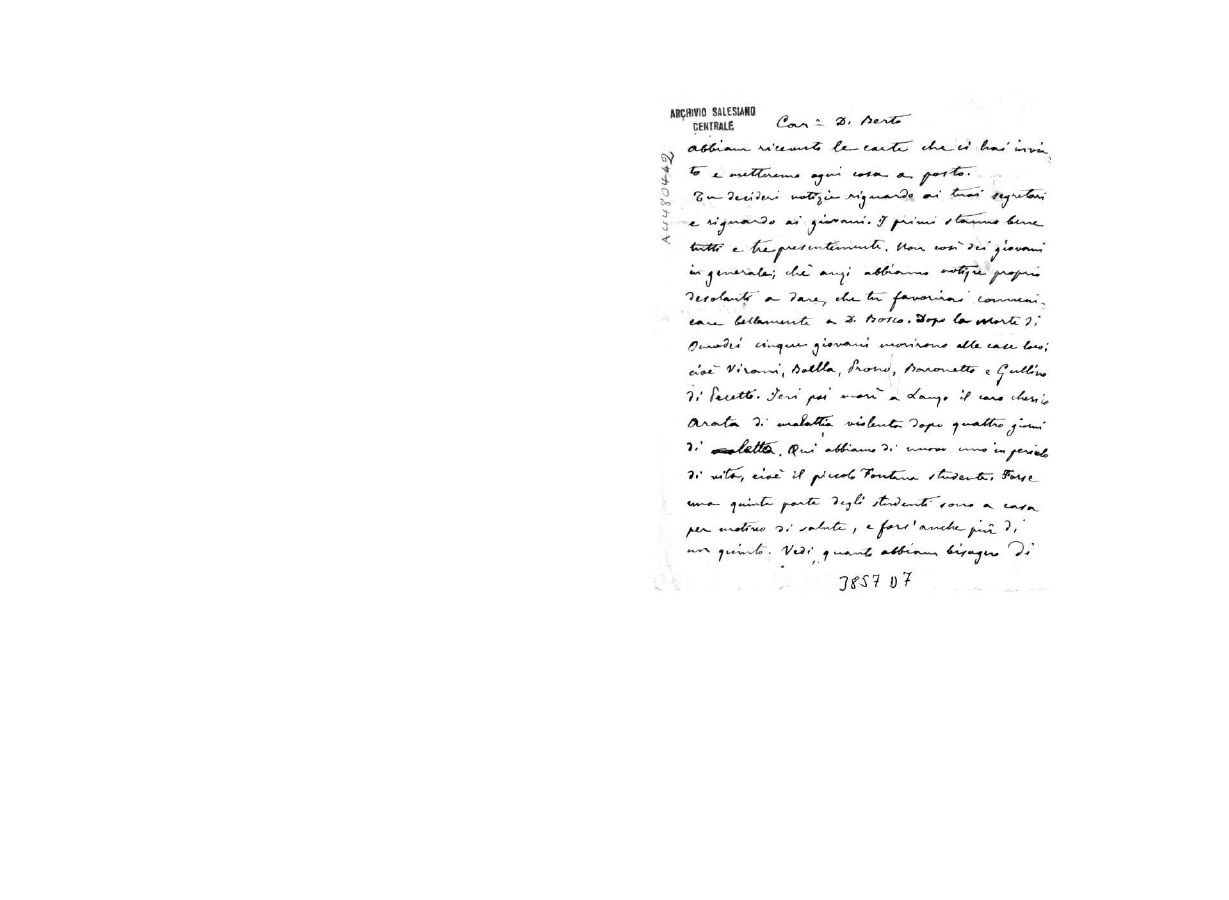 ARCHIVIO SALESIANO
CENTRALE
Car.º D. Berto
A4480442
abbiam ricevuto le carte che ci hai invia-
to e metteremo ogni cosa a posto.
Tu desideri notizie riguardo ai tuoi segretari
e riguardo ai giovani. I primi stanno bene
tutti e tre presentemente. Non così dei giovani
in generale; chè anzi abbiamo notizie proprio
desolanti a dare, che tu favorirai comuni-
care bellamente a D. Bosco. Dopo la morte di
cinque giovani morirono alle case loro;
cioè Virani, Boella, Prono, Baronetto e Gullino
di Pecetto. Ieri poi morì a Lanzo il caro cherico
Arata di malattia violenta dopo quattro giorni
di letto. Qui abbiamo di nuovo uno in pericolo
di vita, cioè il piccolo Fontana studente. Forse
una quinta parte degli studenti sono a casa
per motivo di salute, e fors'anche più di
un quinto. Vedi, quanto abbiam bisogno di
3857 D7